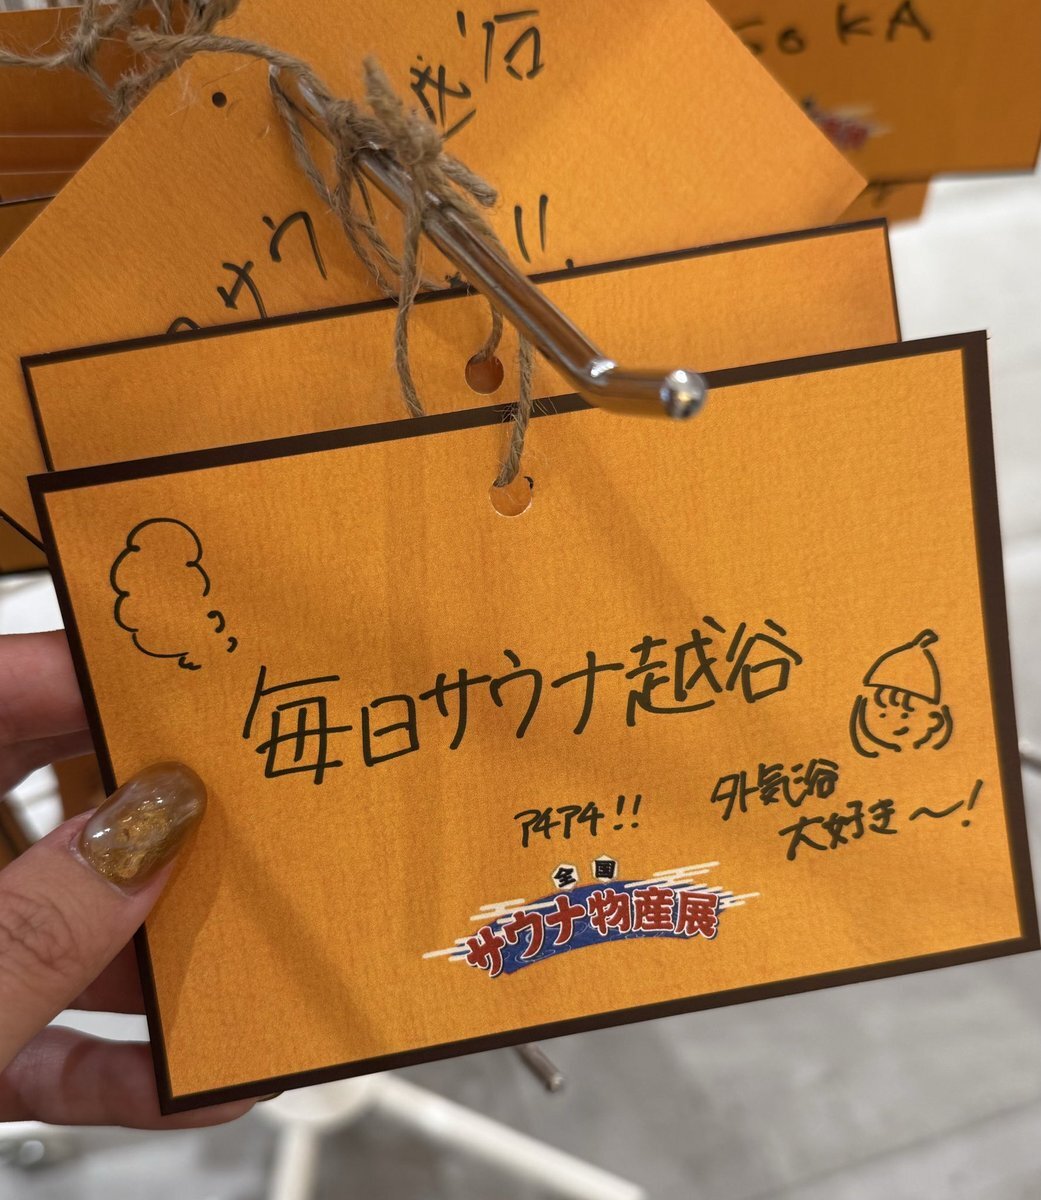 SOKA
毎日サウナ越谷
アチアチ!!
外気浴
大好き〜!
全国
サウナ物産展